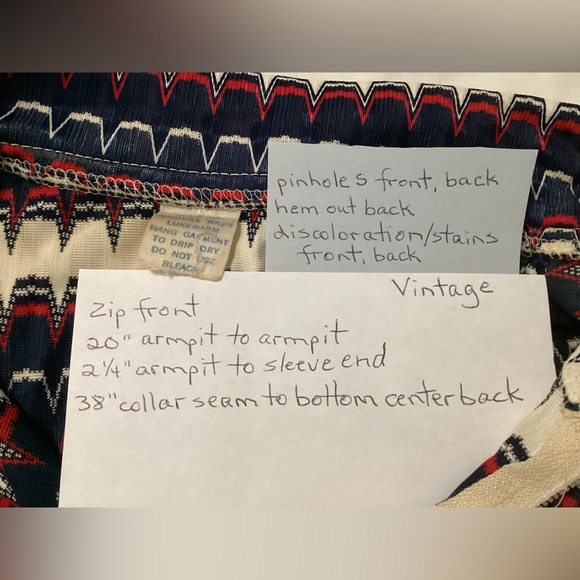 pinholes front, back
hem out back
discoloration/stains
front, back
LUKEWARM
HANG GARMENT
TO DRIP DRY
DO NOT USE
BLEACH
Vintage
Zip front
20" armpit to armpit
2¼" armpit to sleeve end
38" collar seam to bottom center back